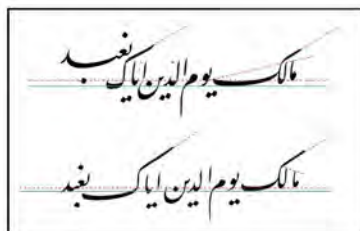 مالک یوم الدین ایاک نعبد
مالک یوم الدین ایاک نعبد